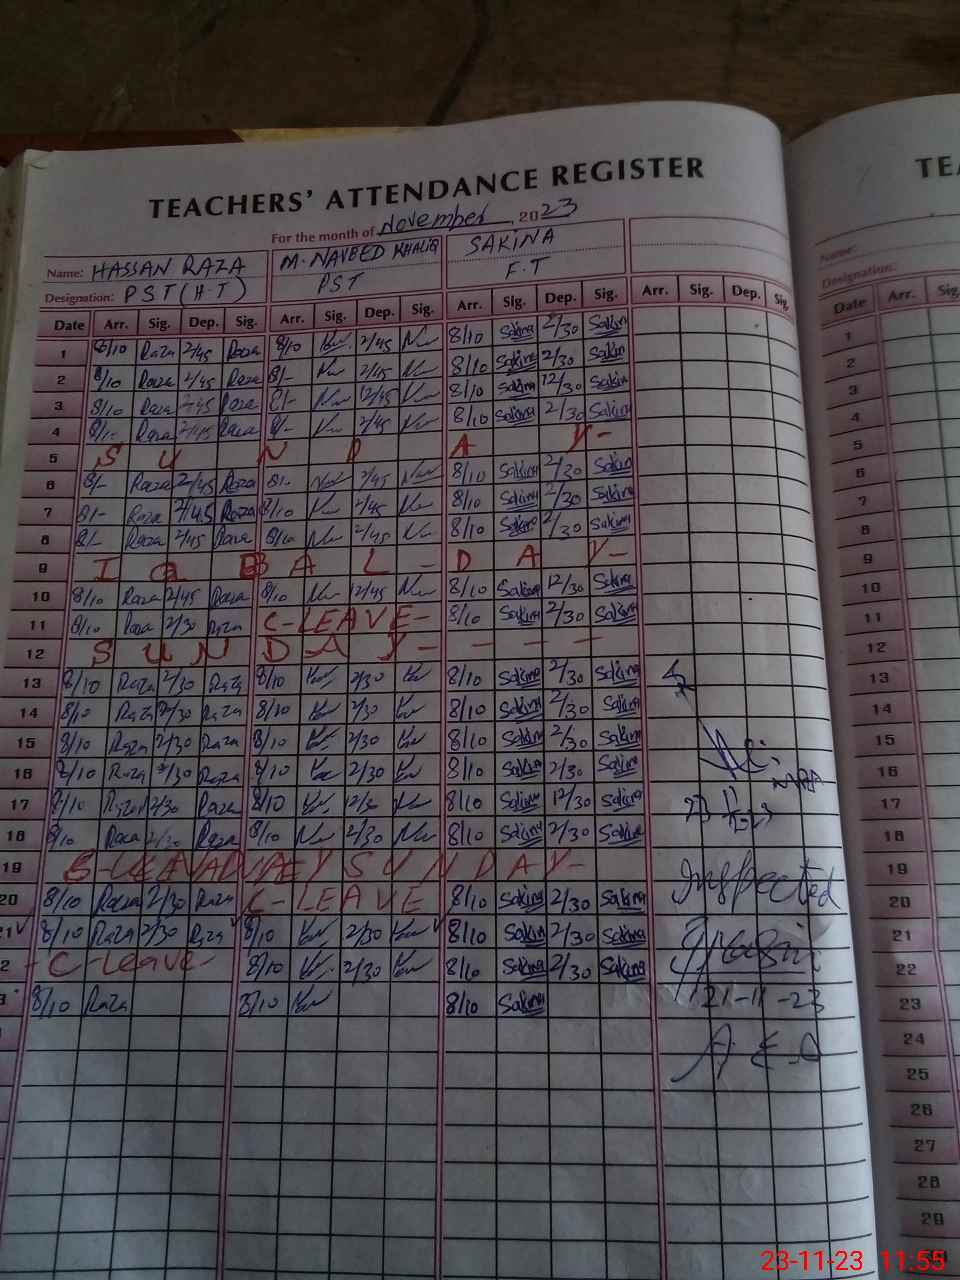 TEACHERS' ATTENDANCE REGISTER
For the month of November 2023
Name: HASSAN RAZA M. NAVEED KHALIQ SAKINA
Designation: PST (H.T) PST F.T
Date Arr. Sig. Dep. Sig. Arr. Sig. Dep. Sig. Arr. Sig. Dep. Sig. Arr. Sig. Dep. Sig.
1 8/10 Raza 2/45 Raza 8/10 2/45 8/10 Sakina 2/30 Sakina
2 8/10 Raza 2/45 Raza 8/- 2/45 8/10 Sakina 2/30 Sakina
3 8/10 Raza 2/45 Raza 8/- 12/45 8/10 Sakina 12/30 Sakina
4 8/10 Raza 2/45 Raza 8/- 2/45 8/10 Sakina 2/30 Sakina
5 S U N D A Y-
6 8/- Raza 2/45 Raza 8/- 2/45 8/10 Sakina 2/30 Sakina
7 8/- Raza 2/45 Raza 8/10 2/45 8/10 Sakina 2/30 Sakina
8 8/- Raza 2/45 Raza 8/10 2/45 8/10 Sakina 2/30 Sakina
9 I Q B A L - D A Y-
10 8/10 Raza 2/45 Raza 8/10 12/45 8/10 Sakina 12/30 Sakina
11 8/10 Raza 2/30 Raza C-LEAVE- 8/10 Sakina 2/30 Sakina
12 S U N D A Y - - - - -
13 8/10 Raza 2/30 Raza 8/10 2/30 8/10 Sakina 2/30 Sakina
14 8/10 Raza 2/30 Raza 8/10 2/30 8/10 Sakina 2/30 Sakina
15 8/10 Raza 2/30 Raza 8/10 2/30 8/10 Sakina 2/30 Sakina
16 8/10 Raza 2/30 Raza 8/10 2/30 8/10 Sakina 2/30 Sakina
17 8/10 Raza 2/30 Raza 8/10 12/30 8/10 Sakina 12/30 Sakina
18 8/10 Raza 2/30 Raza 8/10 2/30 8/10 Sakina 2/30 Sakina
19 S U N D A Y-
20 8/10 Raza 2/30 Raza C-LEAVE 8/10 Sakina 2/30 Sakina
21 8/10 Raza 2/30 Raza 8/10 2/30 8/10 Sakina 2/30 Sakina
2 -C-Leave- 8/10 2/30 8/10 Sakina 2/30 Sakina
3 8/10 Raza 8/10 8/10 Sakina
MEA
Inspected
21-11-23
A.E.O
TEA
Name:
Designation:
Date Arr. Sig.
1
2
3
4
5
6
7
8
9
10
11
12
13
14
15
16
17
18
19
20
21
22
23
24
25
26
27
28
29
23-11-23 11:55